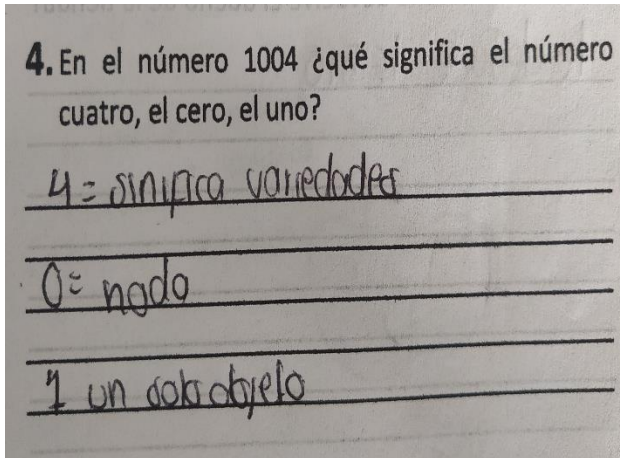 4. En el número 1004 ¿qué significa el número
cuatro, el cero, el uno?
4= sinifica variedades
0= nada
1 un solo objeto